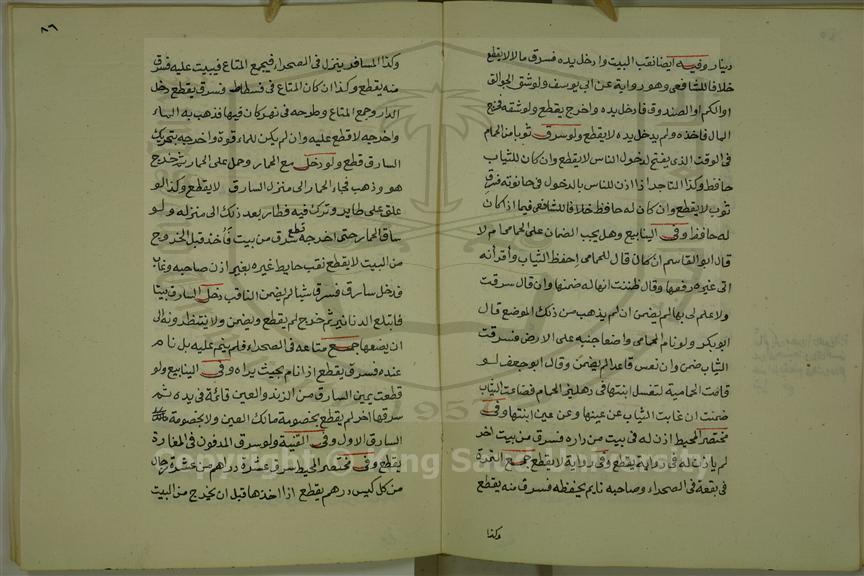 دينار وفيه ايضا نقب البيت وادخل يده فسرق مالا لا يقطع
خلافا للشافعى وهو رواية عن ابى يوسف ولو شق الجوالق
او الكم او الصندوق فادخل يده واخرج يقطع ولو شقه فخرج
المال فاخذه ولم يدخل يده لا يقطع ولو سرق ثوبا من الحمام
فى الوقت الذى يفتح لدخول الناس لا يقطع وان كان للثياب
حافظ وكذا التاجر اذا اذن للناس بالدخول فى حانوته فسرق
ثوب لا يقطع وان كان له حافظ خلافا للشافعى فيما اذ كان
له حافظ وفى الينابيع وهل يجب الضمان على الحمامى ام لا
قال ابو القاسم ان كان قال للحمامى احفظ الثياب واقر انه
اتى غيره رفعها وقال ظننت انها له ضمنها وان قال سرقت
ولا علم لى بها لم يضمن ان لم يذهب من ذلك الموضع قال
ابو بكر ولو نام الحمامى واضعا جنبه على الارض فسرقت
الثياب ضمن وان نعس قاعدا لم يضمن وقال ابو جعفر لو
قامت الحمامية لتغسل ابنتها فى دهليز الحمام فضاعت الثياب
ضمنت ان غابت الثياب عن عينها وعن عين ابنتها وفى
مختصر المحيط اذن له فى بيت من داره فسرق من بيت اخر
لم ياذن له فى رواية يقطع وفى رواية لا يقطع جمع
فى بقعة فى الصحراء وصاحبه نايم يحفظه فسرق منه يقطع
وكذا
٨٦
وكذا المسافر ينزل فى الصحراء فيجمع المتاع فيبيت عليه فسرق
منه يقطع وكذا ان كان المتاع فى فسطاط فسرق يقطع دخل
الدار وجمع المتاع وطوحه فى نهر كان فيها فذهب به الماء
واخرجه لا قطع عليه وان لم يكن للماء قوة واخرجه بتحريك
السارق قطع ولو دخل مع الحمار وحمل على الحمار ثم خرج
هو وذهب فجاء الحمار الى منزل السارق لا يقطع وكذا لو
علق على طاير وترك فيه فطار بعد ذلك الى منزله ولو
ساق الحمار حتى اخرجه قطع سرق من بيت فاخذ قبل الخروج
من البيت لا يقطع نقب حايط غيره بغير اذن صاحبه وغاب
فدخل سارق فسرق شيا لم يضمن الناقب دخل السارق بيتا
فابتلع الدنانير ثم خرج لم يقطع ويضمن ولا ينتظر ونه الى
ان يضعها جمع متاعه فى الصحراء فلم ينم عليه بل نام
عنده فسرق يقطع اذا نام بحيث يراه وفى الينابيع ولو
قطعت يمين السارق من الزند والعين قائمة فى يده ثم
سرقها اخر لم يقطع بخصومة مالك العين ولا بخصومة
السارق الاول وفى القنية ولو سرق المدفون فى المغارة
يقطع وفى مختصر المحيط سرق عشرة دراهم من عشرة رجال
من كل كيس درهم يقطع اذا اخذها قبل ان يخرج من البيت
Copyright © King Saud University
1957